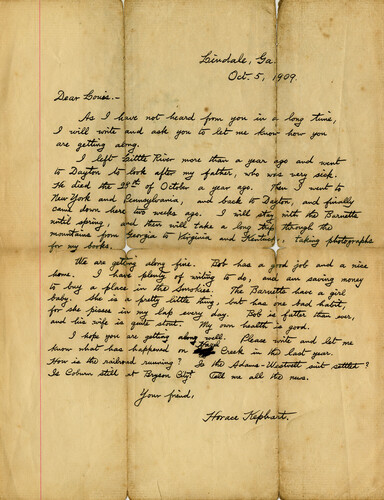 Lindale, Ga.
Oct. 5, 1909.
Dear Louise.-
As I have not heard from you in a long time,
I will write and ask you to let me know how you
are getting along.
I left Little River more than a year ago and went
to Dayton to look after my father, who was very sick.
He died the 28th of October a year ago. Then I went to
New York and Pennsylvania, and back to Dayton, and finally
came down here two weeks ago. I will stay with the Barnetts
until spring, and then will take a long trip through the
mountains from Georgia to Virginia and Kentucky, taking photographs
for my books.
We are getting along fine. Bob has a good job and a nice
home. I have plenty of writing to do, and am saving money
to buy a place in the Smokies. The Barnetts have a girl
baby. She is a pretty little thing, but has one bad habit,
for she pisses in my lap every day. Bob is fatter than ever,
and his wife is quite stout. My own health is good.
I hope you are getting along well. Please write and let me
know what has happened on Creek in the last year.
How is the railroad running? Is the Adams-Westvelt suit settled?
Is Coburn still at Bryson City? Tell me all the news.
Your friend,
Horace Kephart.